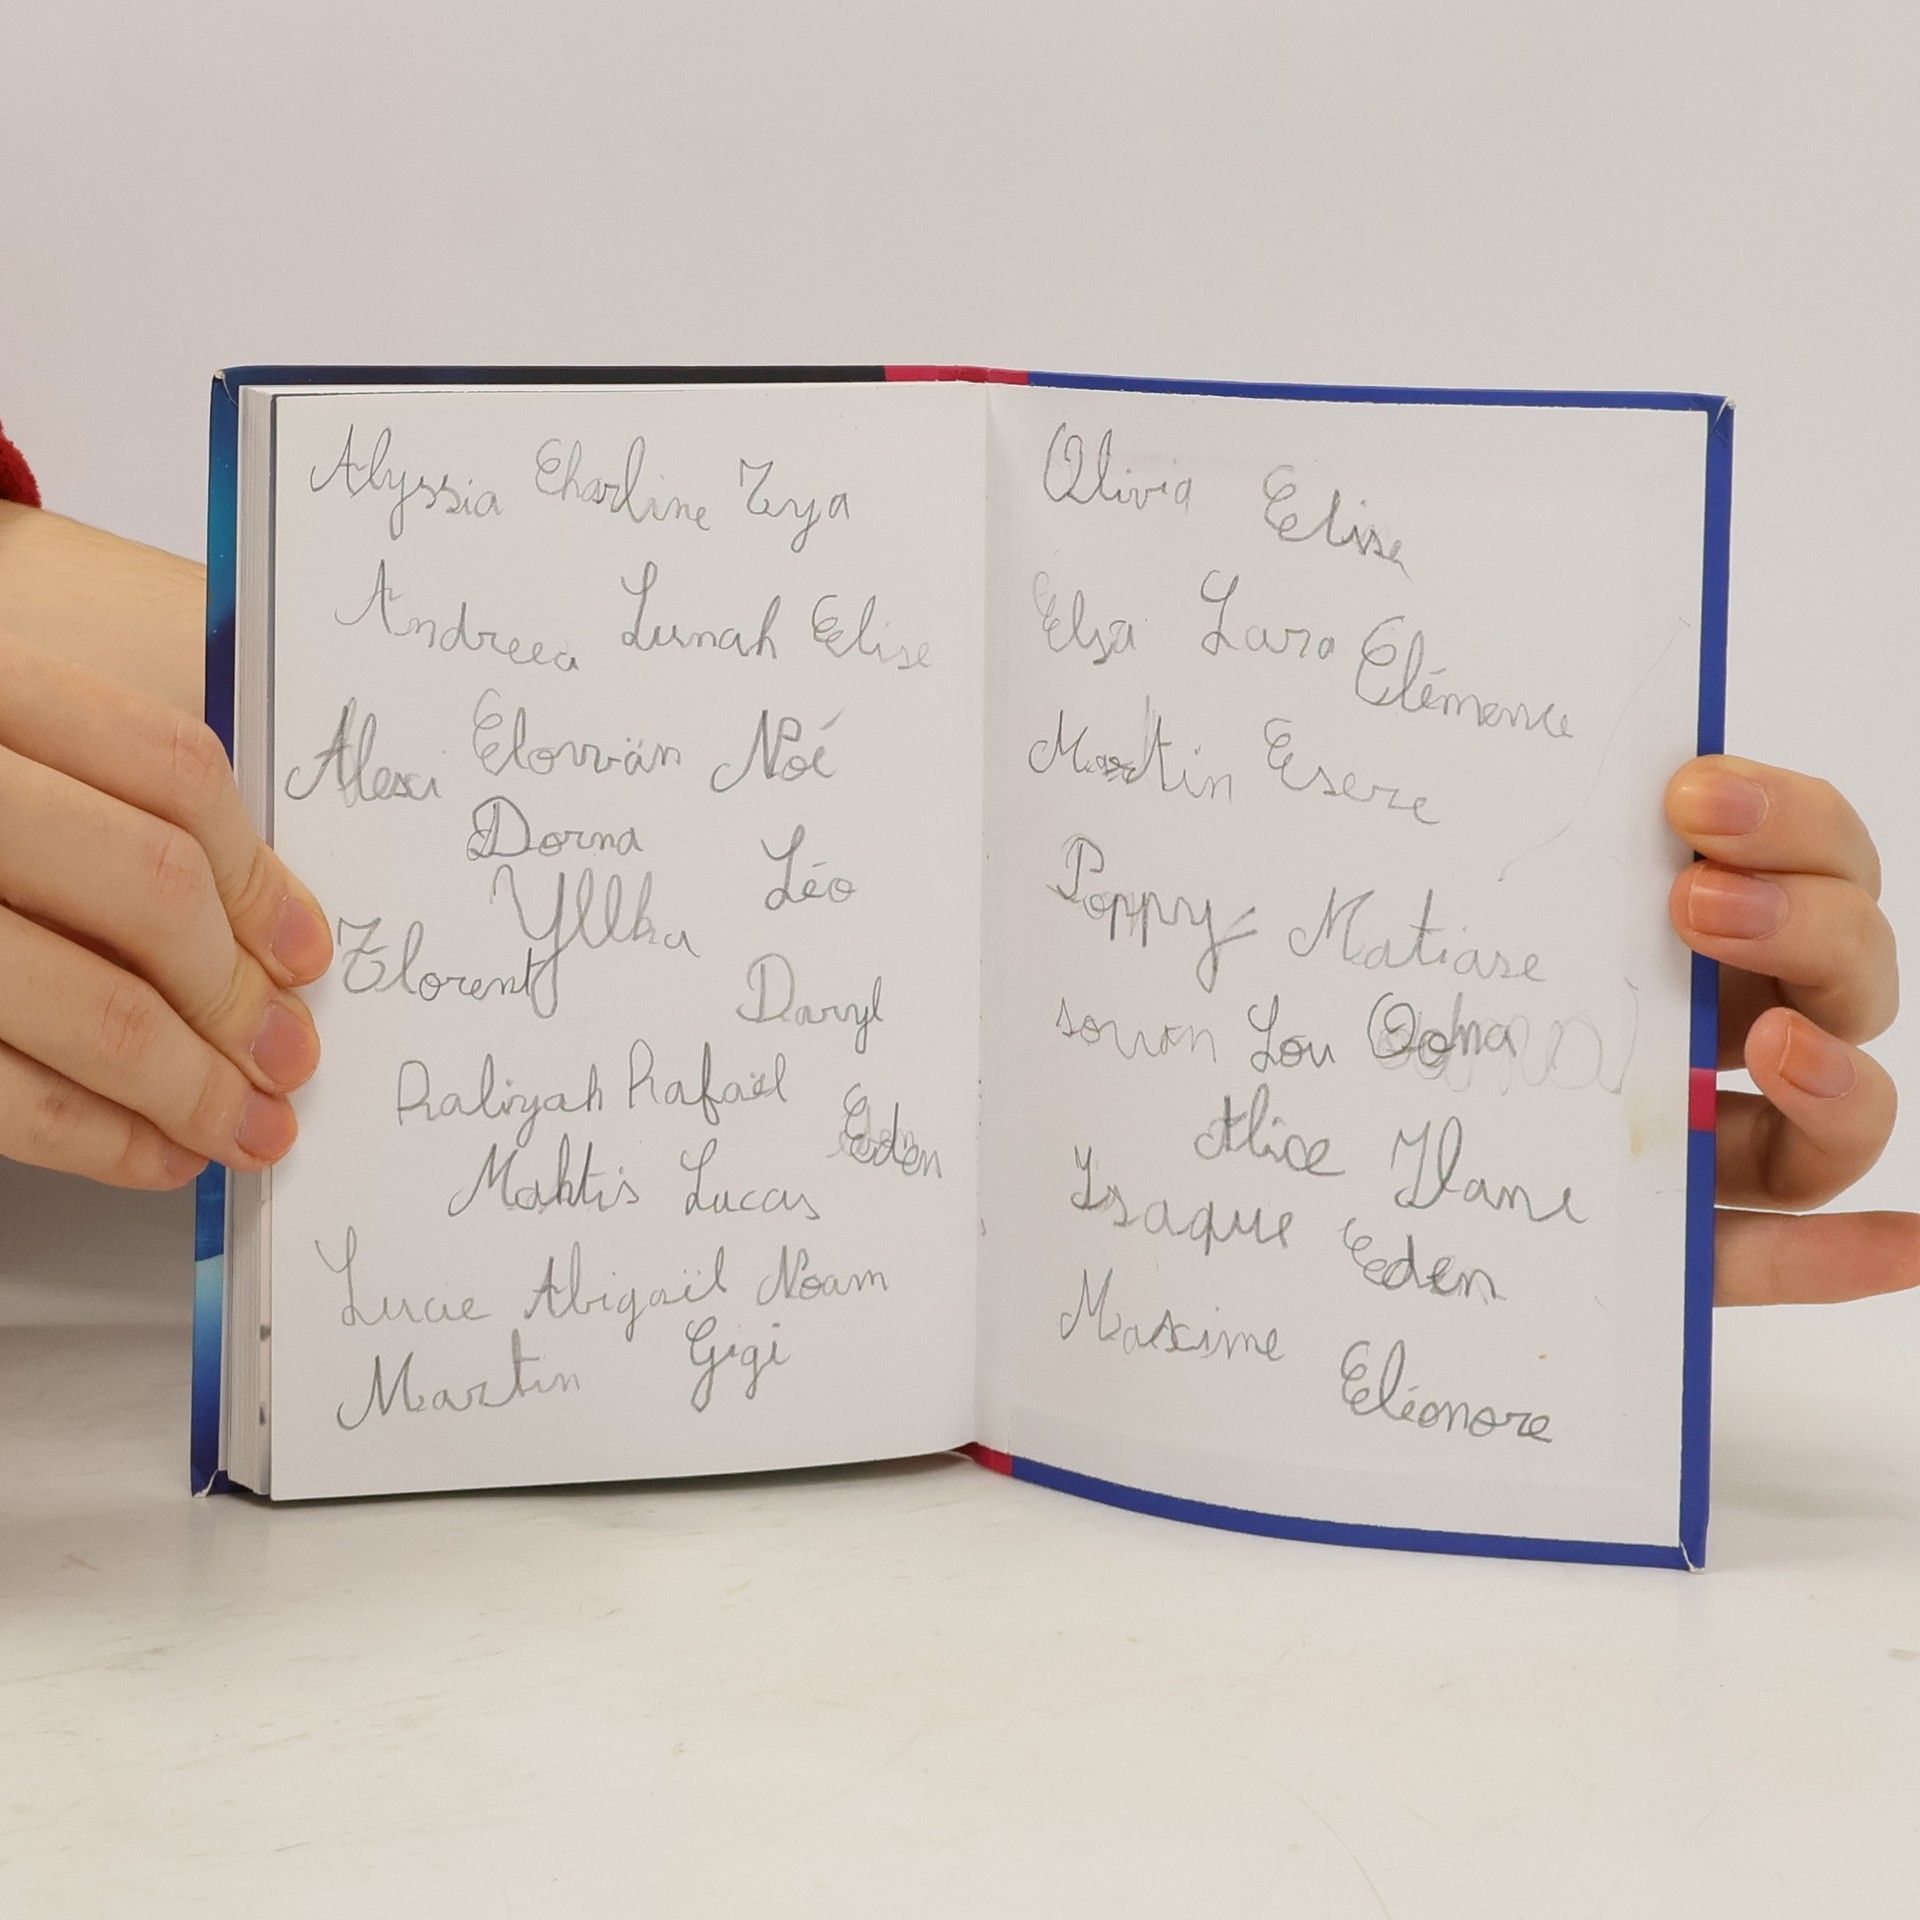 Alyssia Charline Zya
Andreea Lunah Elise
Alexi Elovvän Noé
Dorna Léo
Yllka
Florent
Daryl
Raliyah Rafaël
Eden
Mahtis Lucas
Lucie Abigaïl Noam
Martin Gigi
Olivia Elise
Elsa Lara Clémence
Martin Esere
Poppy Matiase
Lou
Alice Ilane
Isaque Eden
Maxime
Eléonore